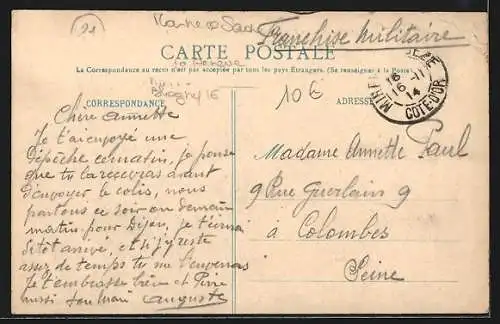 21
Franchise Militaire
CARTE POSTALE
La Correspondance au recto n'est pas acceptée par tous les pays Étrangers. (Se renseigner à la Poste)
CORRESPONDANCE
Chère Annette
Je t'ai envoyé une
dépêche ce matin, je pense
que tu la recevras avant
d'envoyer le colis, nous
partons ce soir ou demain
matin pour Dijon, je t'écrirai
sitot arrivé, et si j'y reste
assez de temps tu me l'enverras
Je t'embrasse
aussi ton mari Auguste
10 €
ADRESSE
16-11
14
COTE-D'OR
Madame Annette Paul
9 Rue Guerlain 9
à Colombes
Seine